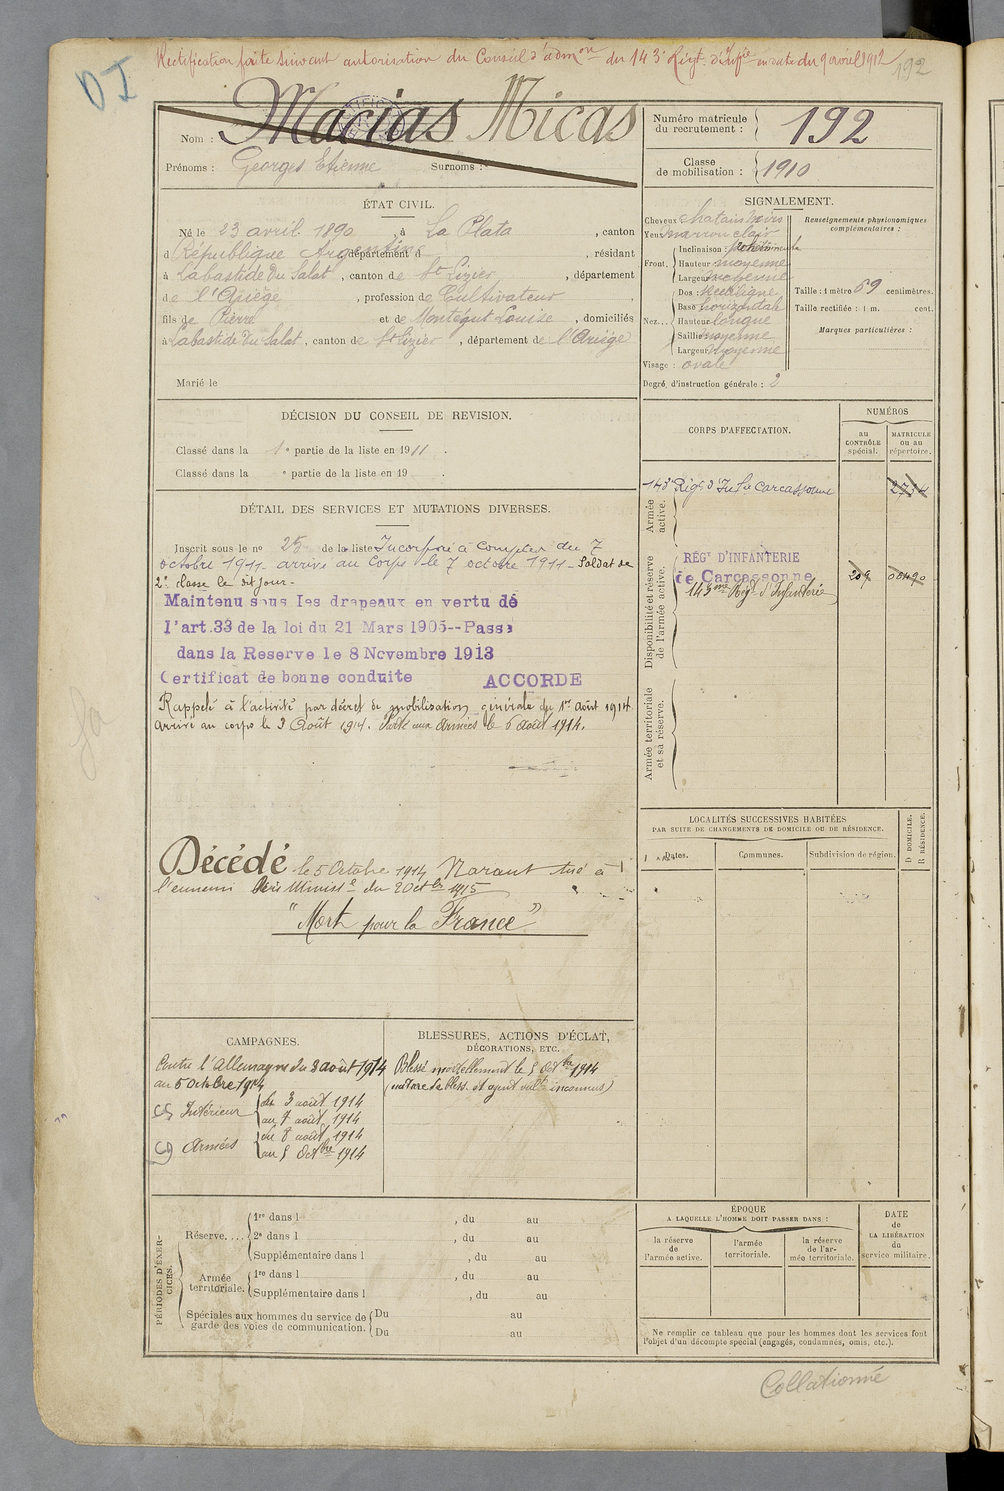 Rectification faite suivant autorisation du Conseil d'adm.on du 143e Régt. d'Infie en date du 9 avril 1912
192
DI
Nom : Macias Micas
Prénoms : Georges Etienne Surnoms :
Numéro matricule du recrutement : 192
Classe de mobilisation : 1910
ÉTAT CIVIL.
Né le 23 avril 1890, à La Plata, canton
d République Argentine département d , résidant
à Labastide du Salat, canton de St Lizier, département
de l'Ariège, profession de Cultivateur,
fils de Pierre et de Montégut Louise, domiciliés
à Labastide du Salat, canton de St Lizier, département de l'Ariège
Marié le
SIGNALEMENT.
Cheveux chatains noirs
Yeux marron clair
Front. Inclinaison :
Hauteur moyenne
Largeur moyenne
Nez... Dos : Rectiligne
Base horizontale
Hauteur longue
Saillie moyenne
Largeur moyenne
Visage : ovale
Renseignements physionomiques complémentaires :
Taille : 1 mètre 69 centimètres.
Taille rectifiée : 1 m. cent.
Marques particulières :
Degré d'instruction générale : 2
DÉCISION DU CONSEIL DE REVISION.
Classé dans la 1e partie de la liste en 1911.
Classé dans la e partie de la liste en 19 .
DÉTAIL DES SERVICES ET MUTATIONS DIVERSES.
Inscrit sous le no 25 de la liste Incorporé à compter du 7
octobre 1911 arrivé au Corps le 7 octobre 1911 - Soldat de
2e classe le dit jour -
Maintenu sous les drapeaux en vertu de
l'art.33 de la loi du 21 Mars 1905--Passe
dans la Reserve le 8 Novembre 1913
Certificat de bonne conduite ACCORDE
Rappelé à l'activité par décret de mobilisation générale du 1er Août 1914
arrivé au corps le 3 Août 1914. Parti aux Armées le 6 août 1914.
Décédé le 5 Octobre 1914 Narant tué à
l'ennemi du 2 Octbre 1915
"Mort pour la France"
CORPS D'AFFECTATION.
NUMÉROS
au CONTRÔLE spécial.
MATRICULE ou au répertoire.
Armée active.
143e Régt d'Infie Carcassonne
Disponibilité et réserve de l'armée active.
RÉGt D'INFANTERIE
de Carcassonne
143me Régt d'Infanterie
209
Armée territoriale et sa réserve.
LOCALITÉS SUCCESSIVES HABITÉES
PAR SUITE DE CHANGEMENTS DE DOMICILE OU DE RÉSIDENCE.
Dates.
Communes.
Subdivision de région.
D DOMICILE.
R RÉSIDENCE.
CAMPAGNES.
Contre l'Allemagne du 3 août 1914
au 5 Octobre 1914
CS Intérieur du 3 août 1914
au 7 août 1914
CD Armées du 8 août 1914
au 5 Octbre 1914
BLESSURES, ACTIONS D'ÉCLAT,
DÉCORATIONS, ETC.
Blessé mortellement le 5 Octbre 1914
(nature de bless. et agent vult inconnus)
PÉRIODES D'EXERCICES.
Réserve.... 1re dans l , du au
2e dans l , du au
Supplémentaire dans l , du au
Armée territoriale. 1re dans l , du au
Supplémentaire dans l , du au
Spéciales aux hommes du service de garde des voies de communication. Du au
Du au
ÉPOQUE
A LAQUELLE L'HOMME DOIT PASSER DANS :
la réserve de l'armée active.
l'armée territoriale.
la réserve de l'armée territoriale.
DATE de LA LIBÉRATION du service militaire.
Ne remplir ce tableau que pour les hommes dont les services font l'objet d'un décompte spécial (engagés, condamnés, omis, etc.).
Collationné